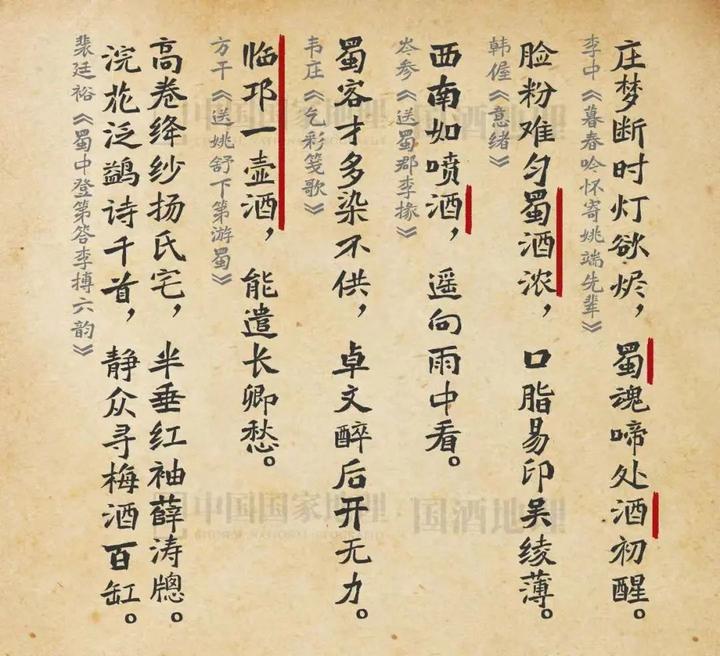 庄梦断时灯欲烬，蜀魂啼处酒初醒。
李中《暮春吟怀寄姚端先辈》
脸粉难匀蜀酒浓，口脂易印吴绫薄。
韩偓《意绪》
西南如喷酒，遥向雨中看。
岑参《送蜀郡李掾》
蜀客才多染不供，卓文醉后开无力。
韦庄《乞彩笺歌》
临邛一壶酒，能遣长卿愁。
方干《送姚舒下第游蜀》
高卷绛纱扬氏宅，半垂红袖薛涛牕。
浣花泛鹢诗千首，静众寻梅酒百缸。
裴廷裕《蜀中登第答李搏六韵》
中国国家地理
国酒地理
中国国家地理
国酒地理